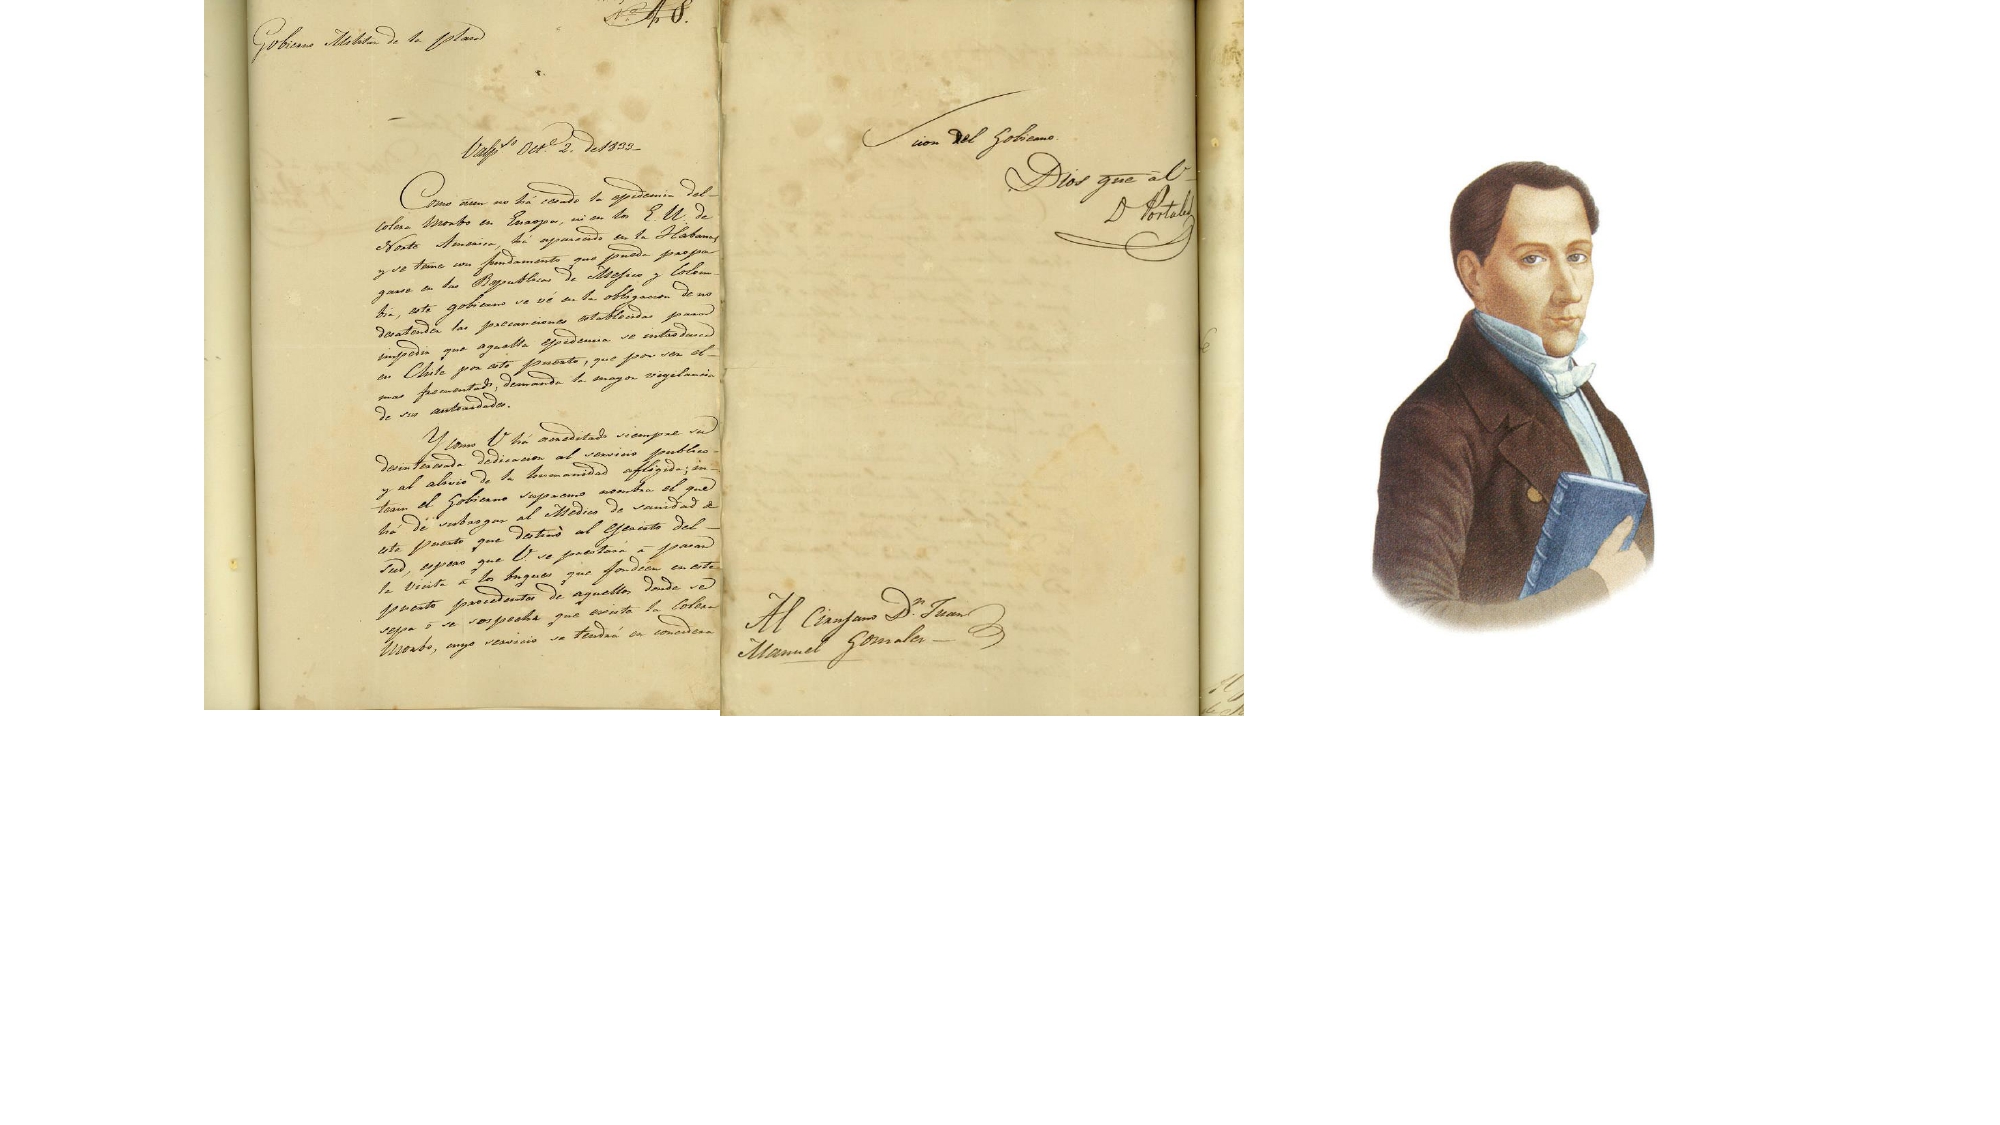 Nº 48.
Gobierno Militar de la plaza
Valpso Octe 2. de 1833-
Como aun no há cesado la epidemia del-
colera morbo en Europa, ni en los E. U. de
Norte America, há aparecido en la Habana,
y se teme con fundamento que pueda propa-
garse en las Republicas de Mejico y Colom-
bia, este gobierno se vé en la obligacion de no
desatender las precauciones establecidas para
impedir que aquella epidemia se introdusca
en Chile por este puerto, que por ser el-
mas frecuentado, demanda la mayor vegilancia
de sus autoridades.
Y como V há acreditado siempre su
desinteresada dedicacion al servicio publico-
y al alivio de la humanidad afligida; in-
terin el Gobierno supremo nombra el que
há de subrogar al Medico de sanidad de
este puerto que destinó al Ejercito del-
Sud, espero que V. se prestará á pasar
la visita á los buques que fondeen en este
puerto procedentes de aquellos donde se
sepa ó se sospeche que existe la Colera
Morbo, cuyo servicio se tendrá en considera
cion del Gobierno.
Dios gue á V-
D Portales
Al Cirujano Dn. Juan
Manuel Gonzalez-